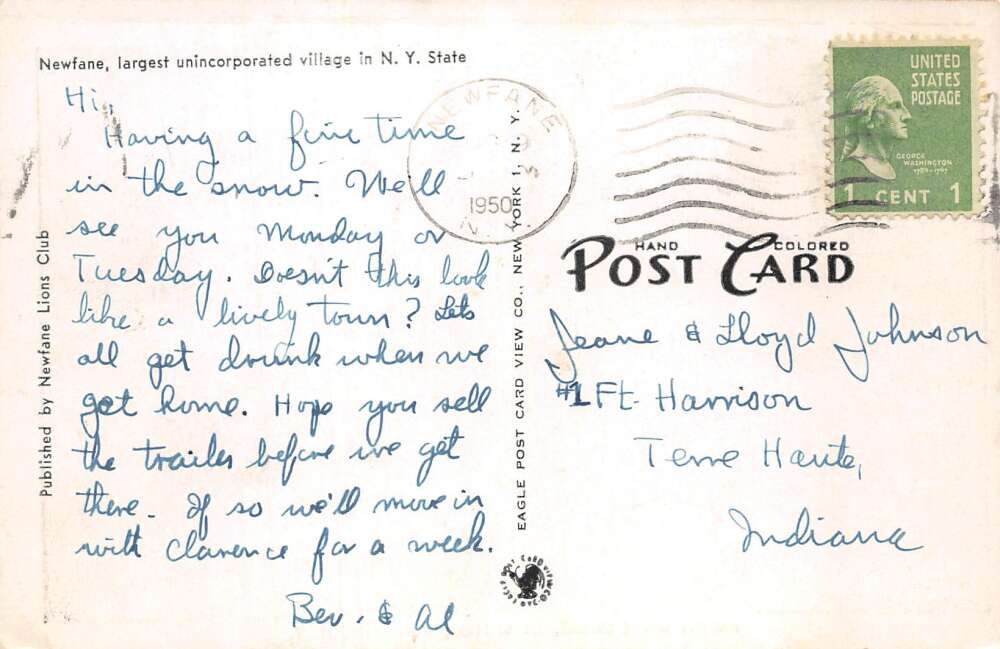 Newfane, largest unincorporated village in N. Y. State
Hi,
Having a fine time
in the snow. We'll
see you Monday or
Tuesday. Doesn't this look
like a lively town? Lets
all get drunk when we
get home. Hope you sell
the trailer before we get
there. If so we'll move in
with Clarence for a week.
Bev. & Al
Published by Newfane Lions Club
EAGLE POST CARD VIEW CO., NEW YORK 1, N. Y.
NEWFANE
1950
N. Y.
UNITED
STATES
POSTAGE
GEORGE
WASHINGTON
1789-1797
1 CENT 1
HAND COLORED
POST CARD
Jeane & Lloyd Johnson
#1 Ft. Harrison
Terre Haute,
Indiana